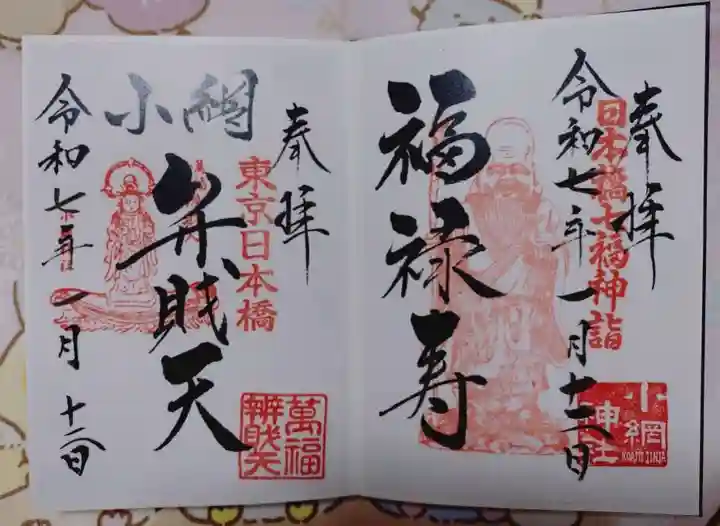 奉拝
日本橋七福神詣
令和七年一月十二日
福禄寿
小網
神社
KOAMI JINJA
奉拝
東京日本橋
小網
弁賎天
令和七年一月十二日
萬福
辨財天